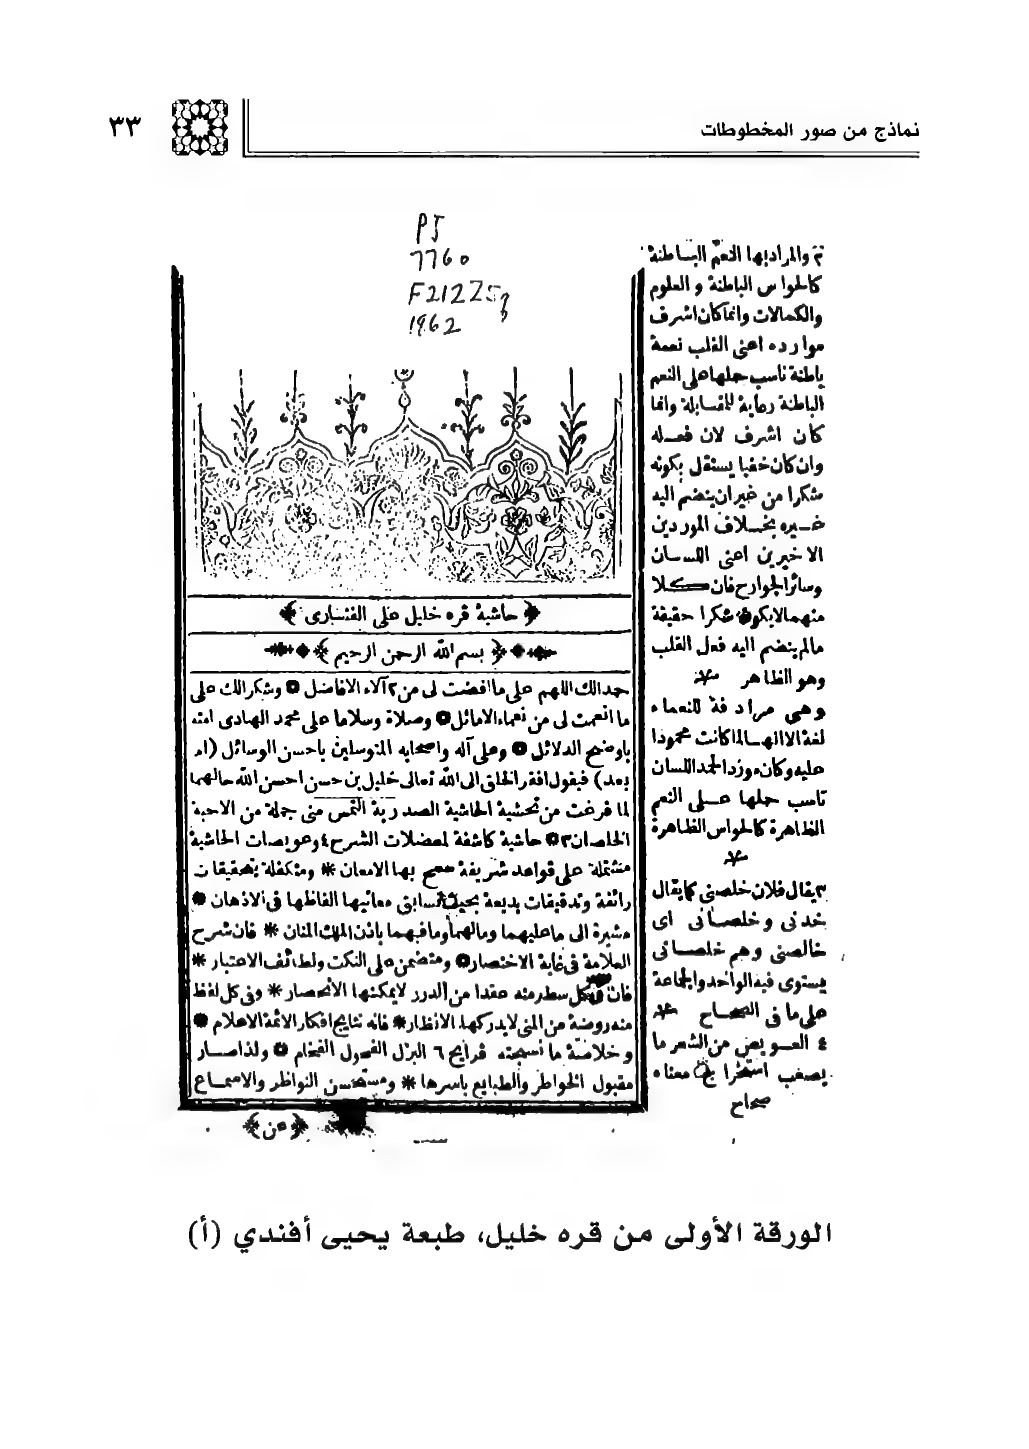 نماذج من صور المخطوطات
٣٣
PJ
7760
F212Z5
1962
﴿ حاشية قره خليل على الفنارى ﴾
﴿ بسم الله الرحمن الرحيم ﴾
حمدا لك اللهم على ما افضت لى من ٢ آلاء الافاضل وشكرا لك على
ما انعمت لى من نعماء الاماثل وصلاة وسلاما على محمد الهادى امته
باوضح الدلائل وعلى آله واصحابه المتوسلين باحسن الوسائل (اما
بعد) فيقول افقر الخلق الى الله تعالى خليل بن حسن احسن الله حالهما
لما فرغت من تحشية الحاشية الصدرية التمس منى جملة من الاحبة
الخلصان ٣ حاشية كاشفة لمعضلات الشرح ٤ وعويصات الحاشية
مشتملة على قواعد شريفة بها الامعان * ومتكفلة بتحقيقات
رائقة وتدقيقات بديعة بحيث تسابق معانيها الفاظها فى الاذهان
مشيرة الى ما عليهما وما لهما وما فيهما باذن الملك المنان * فان شرح
العلامة فى غاية الاختصار ومتضمن على النكت ولطائف الاعتبار *
فان فى كل سطر منه عقدا من الدرر لا يمكنها الانحصار * وفى كل لفظ
منه روضة من المنى لا يدركها الانظار * فانه نتايج افكار الائمة الاعلام
وخلاصة ما نسجته قرايح ٦ البزل الفحول الفخام ولذا صار
مقبول الخواطر والطبايع باسرها * ومستحسن النواظر والاسماع
﴿ عن ﴾
٢ والمراد بها النعم الباطنة
كالحواس الباطنة والعلوم
والكمالات وانما كان اشرف
موارده اعنى القلب نعمة
باطنة ناسب حملها على النعم
الباطنة رعاية للمقابلة وانما
كان اشرف لان فعله
وان كان خفيا يستقل بكونه
شكرا من غير ان ينضم اليه
غيره بخلاف الموردين
الاخيرين اعنى اللسان
وسائر الجوارح فان كلا
منهما لا يكون شكرا حقيقة
مالم ينضم اليه فعل القلب
وهو الظاهر
وهى مرادفة للنعماء
لغة الا انها لما كانت محمودا
عليه وكان مورد الحمد اللسان
ناسب حملها على النعم
الظاهرة كالحواس الظاهرة
٣ يقال فلان خلصنى كما يقال
خدنى وخلصانى اى
خالصنى وهم خلصانى
يستوى فيه الواحد والجماعة
على ما فى الصحاح
٤ العويص من الشعر ما
يصعب استخراج معناه
صحاح
الورقة الأولى من قره خليل، طبعة يحيى أفندي (أ)